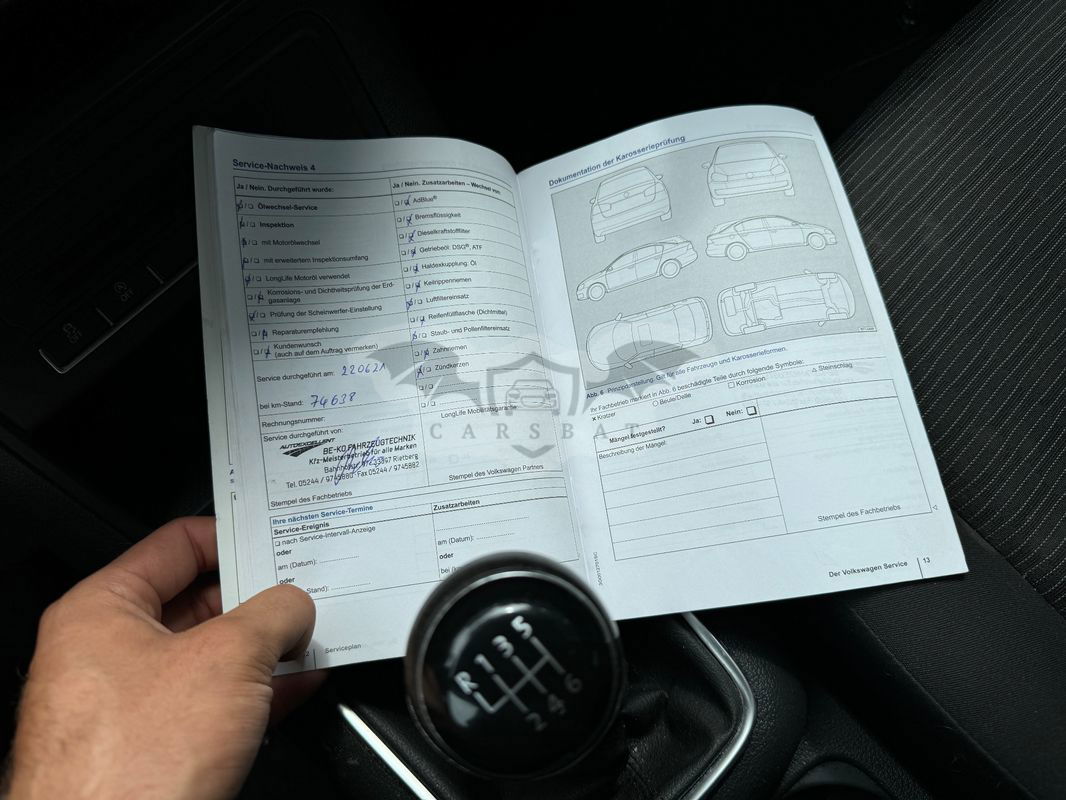 Service-Nachweis 4
Ja / Nein. Durchgeführt wurde:
Ölwechsel-Service
Inspektion
mit Motorölwechsel
mit erweitertem Inspektionsumfang
LongLife Motoröl verwendet
Korrosions- und Dichtheitsprüfung der Erd-
gasanlage
Prüfung der Scheinwerfer-Einstellung
Reparaturempfehlung
Kundenwunsch
(auch auf dem Auftrag vermerken)
Service durchgeführt am: 220621
bei km-Stand: 74638
Rechnungsnummer:
Service durchgeführt von:
AUTOEXCELLENT
BE-KO FAHRZEUGTECHNIK
Kfz-Meisterbetrieb für alle Marken
33397 Rietberg
Tel. 05244 / 9745880 Fax 05244 / 9745882
Stempel des Fachbetriebs
Ja / Nein. Zusatzarbeiten – Wechsel von:
AdBlue®
Bremsflüssigkeit
Dieselkraftstofffilter
Getriebeöl: DSG®, ATF
Haldexkupplung: Öl
Keilrippenriemen
Luftfiltereinsatz
Reifenfüllflasche (Dichtmittel)
Staub- und Pollenfiltereinsatz
Zahnriemen
Zündkerzen
LongLife Mobilitätsgarantie
Stempel des Volkswagen Partners
Ihre nächsten Service-Termine
Service-Ereignis
nach Service-Intervall-Anzeige
oder
am (Datum):
oder
Stand):
Zusatzarbeiten
am (Datum):
oder
bei
Serviceplan
Dokumentation der Karosserieprüfung
Abb. 6 Prinzipdarstellung: Gilt für alle Fahrzeuge und Karosserieformen.
Ihr Fachbetrieb markiert in Abb. 6 beschädigte Teile durch folgende Symbole:
× Kratzer ○ Beule/Delle □ Korrosion △ Steinschlag
Mängel festgestellt? Ja: Nein:
Beschreibung der Mängel:
Stempel des Fachbetriebs
Der Volkswagen Service 13
CARSBAT
R 1 3 5
2 4 6